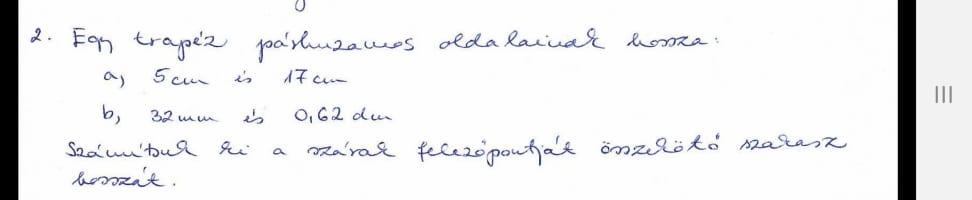 2. Egy trapéz párhuzamos oldalainak hossza:
a, 5cm és 17cm
b, 32mm és 0,62 dm
Számítsuk ki a szárak felezőpontját összekötő szakasz
hosszát.